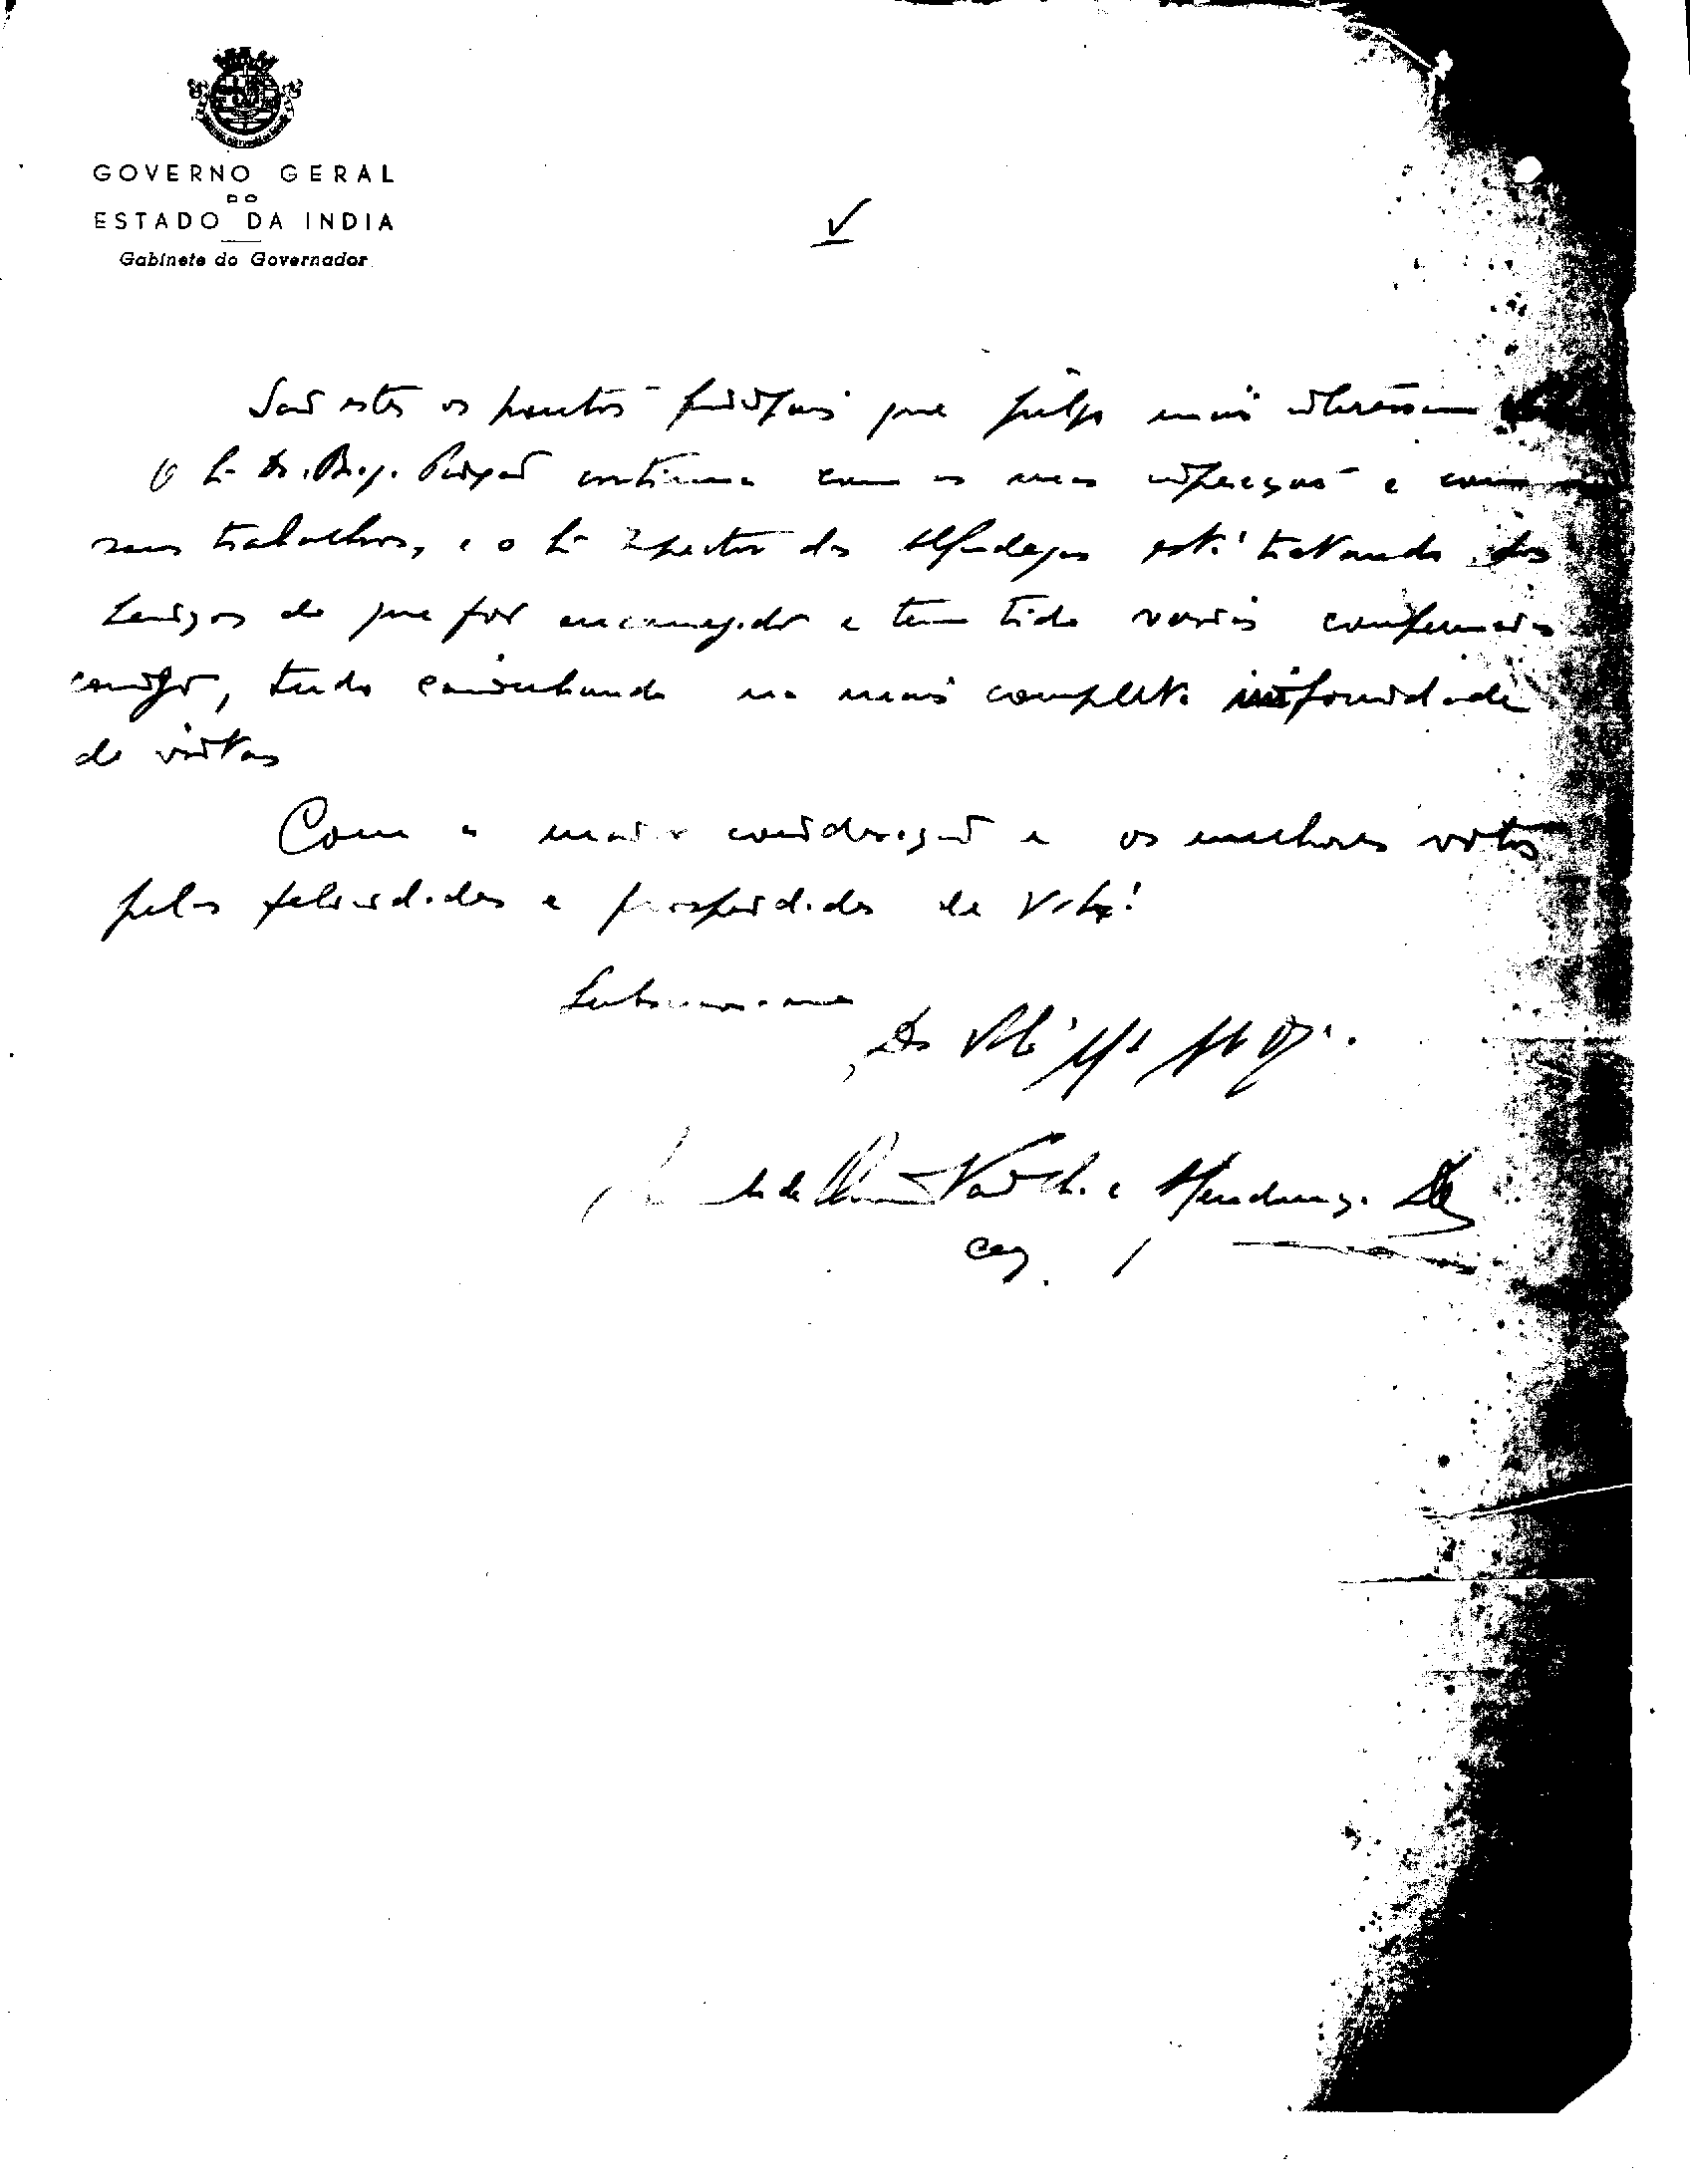 GOVERNO GERAL
DO
ESTADO DA INDIA
Gabinete do Governador
V
São estes os pontos principais que julgo mais
O Sr. Dr. continua com as suas inspecções e com
seus trabalhos, e o Sr. Inspector das Alfandegas está tratando dos
serviços de que foi encarregado e tem tido varias conferencias
comigo, tudo caminhando na mais completa uniformidade
de vistas
Com a maior consideração e os melhores votos
pelas felicidades e prosperidades de V. Exª
Subscrevo-me
De V. Exª
e Mendonça Dias